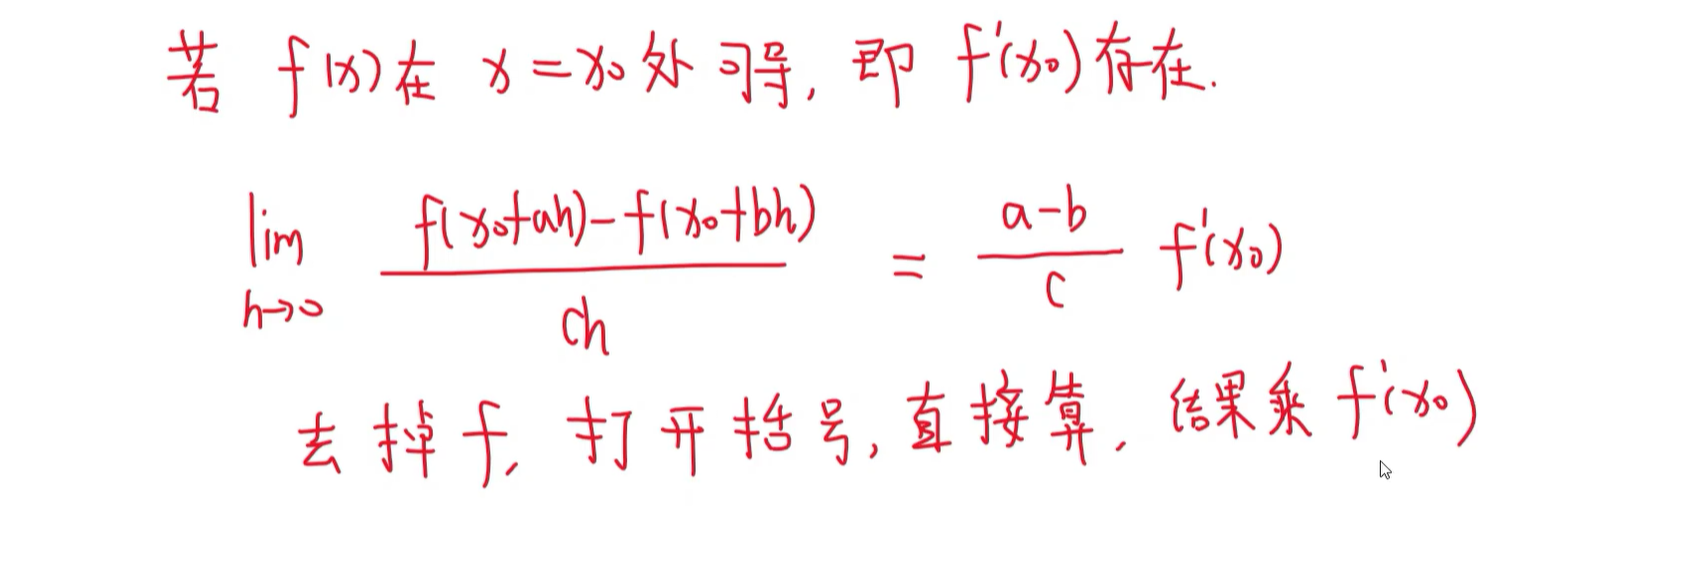 若 f(x)在 x=x₀处可导, 即 f'(x₀)存在.
lim h→0 (f(x₀+ah)-f(x₀+bh))/(ch) = (a-b)/c f'(x₀)
去掉f, 打开括号, 直接算, 结果乘 f'(x₀)